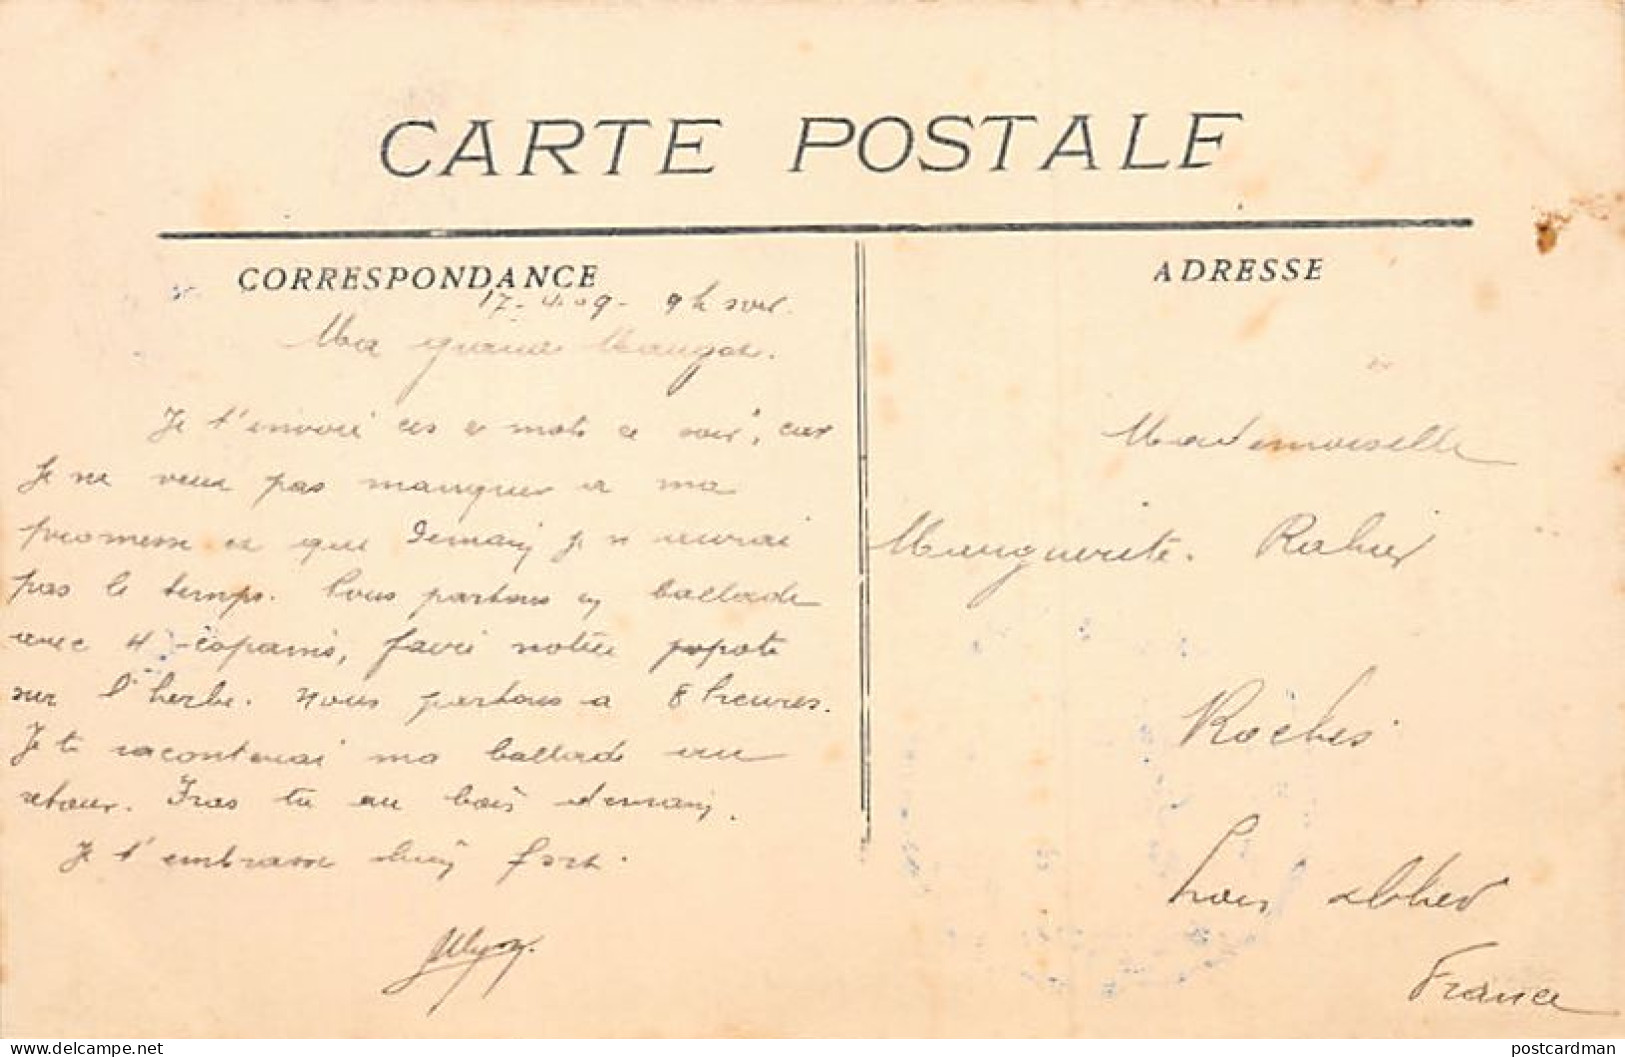 CARTE POSTALE
CORRESPONDANCE
17-4-09- 9h soir.
Ma grande
Je t'envoie ces 2 mots ce soir, car
Je ne veux pas manquer a ma
promesse et que demain je n'aurai
pas le temps. Nous partons en ballade
avec 4 copains, faire notre popote
sur l'herbe. Nous partons a 8 heures.
Je te raconterai ma ballade au
retour. Iras tu au bois demain.
Je t'embrasse bien fort.
ADRESSE
Mademoiselle
Marguerite
Roches
Loir et Cher
France
Delcampe.net
postcardman